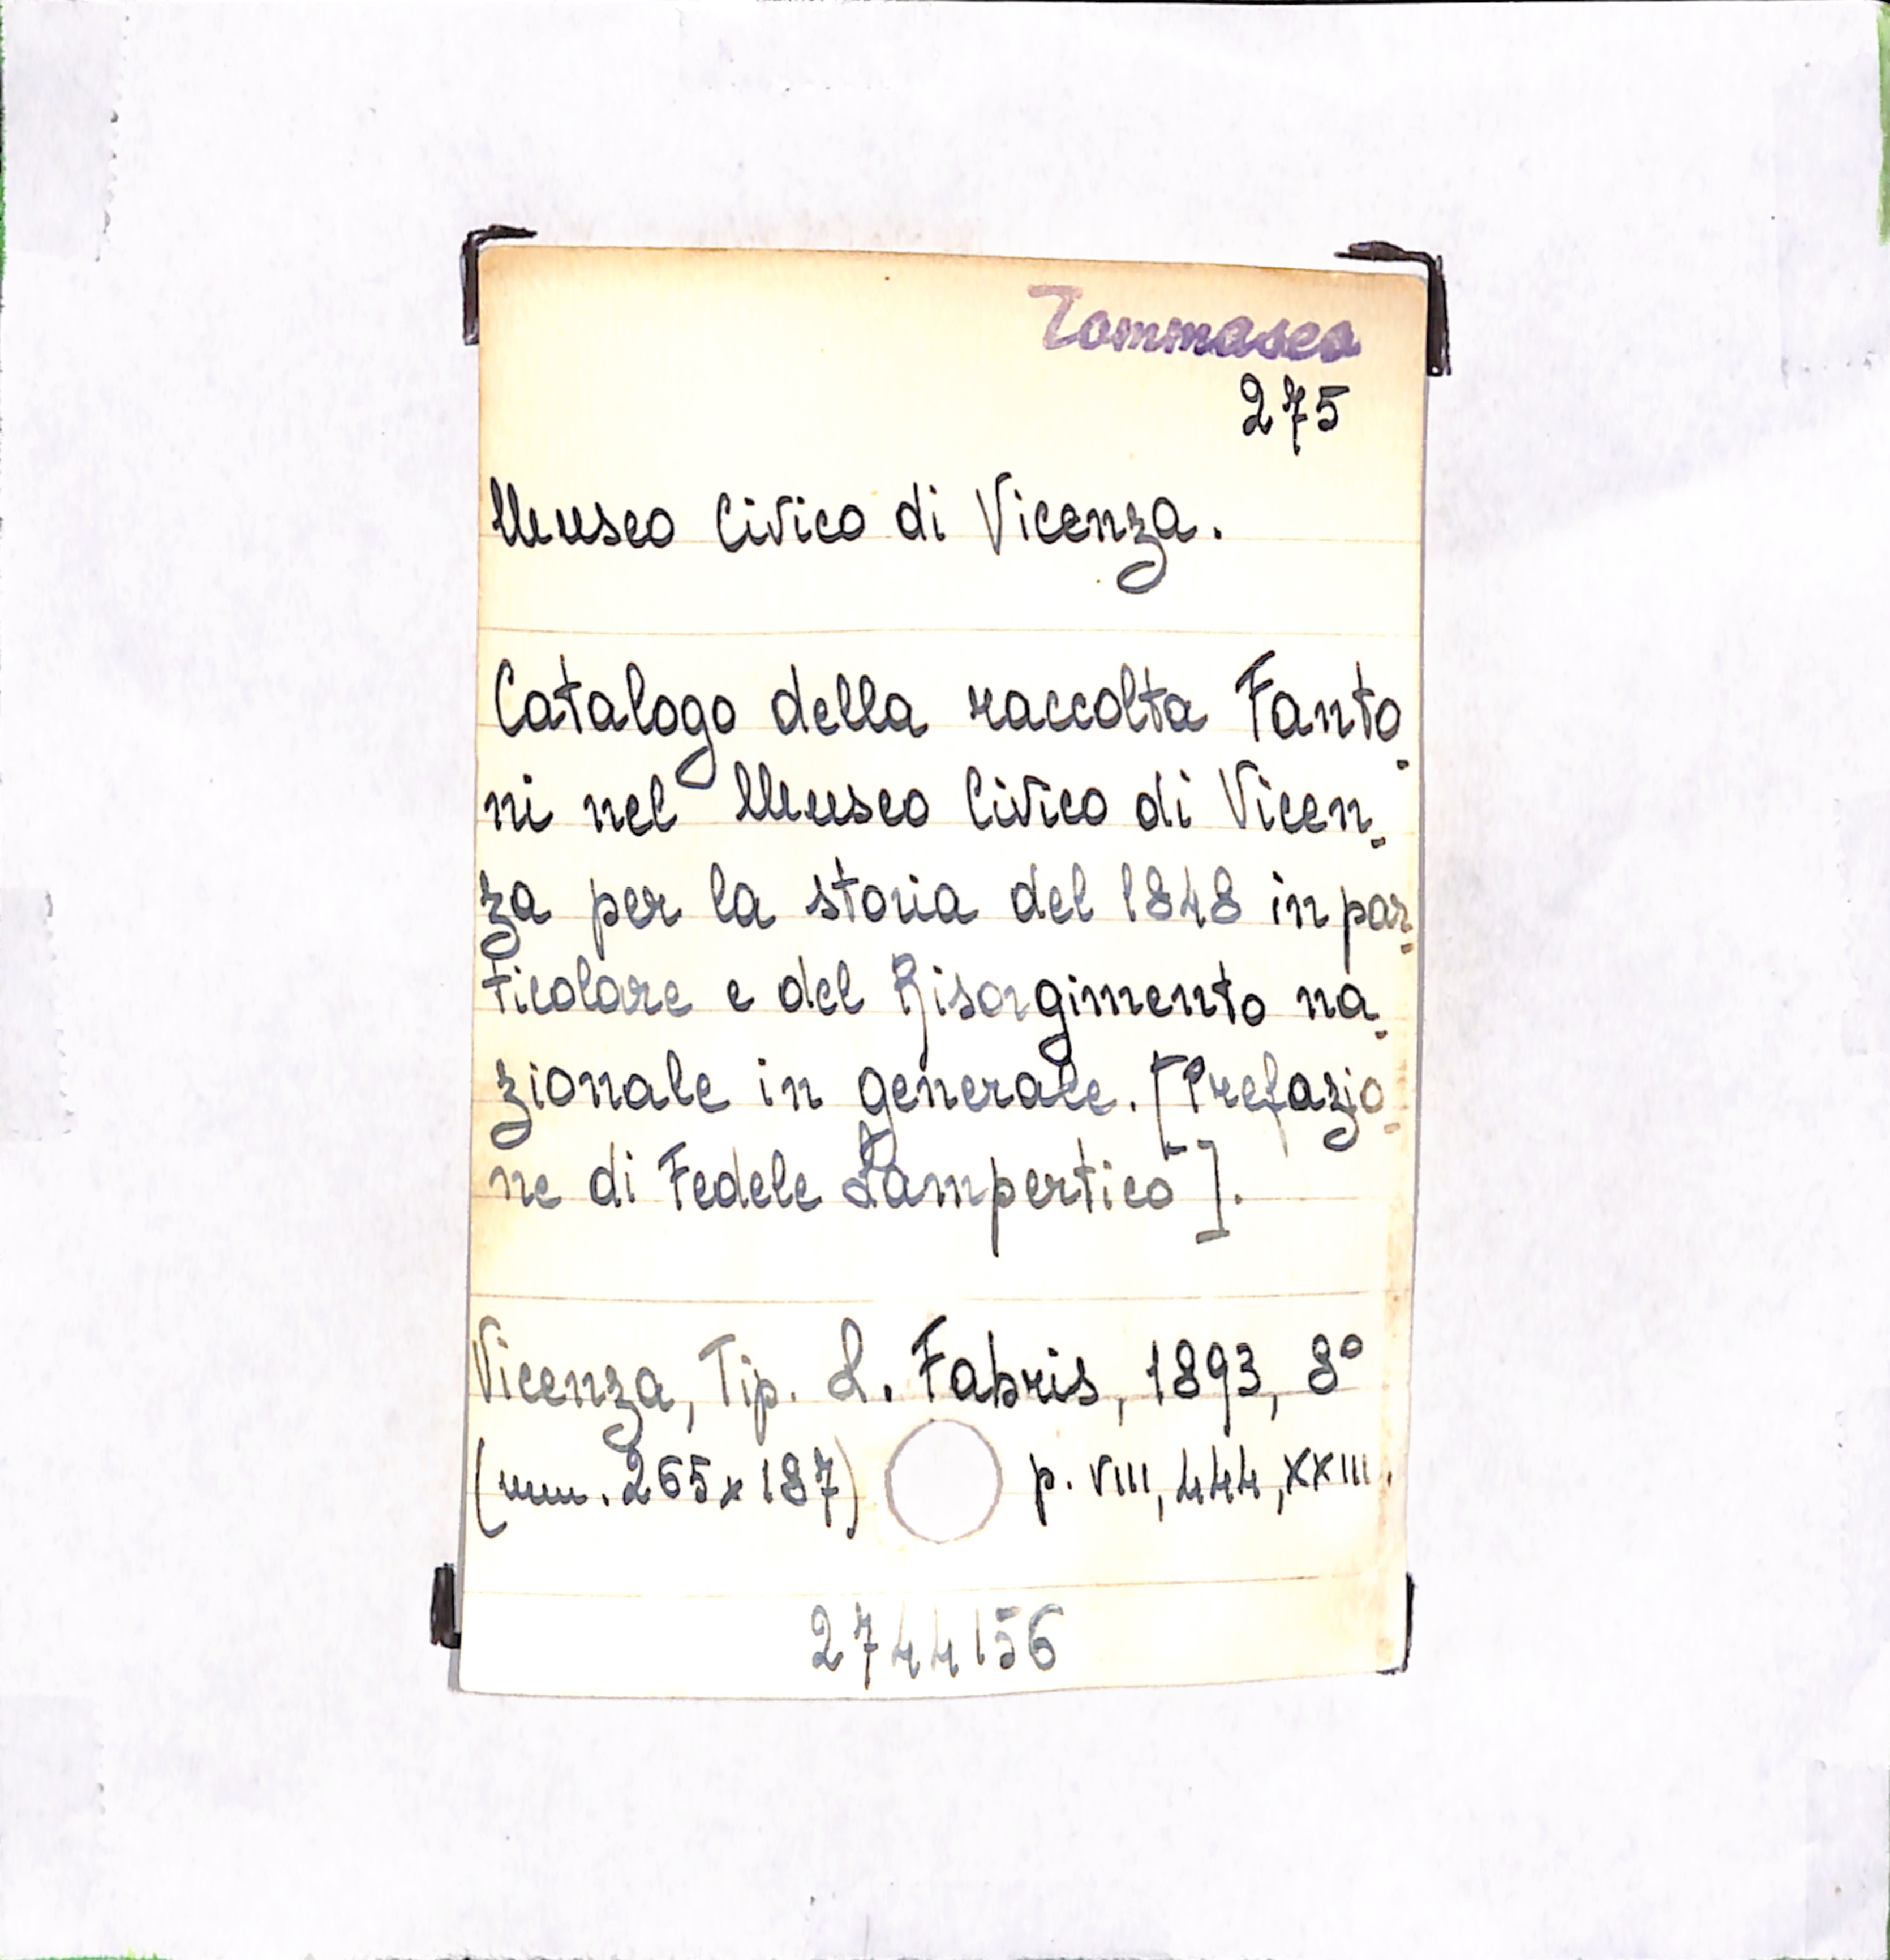 Tommaseo
275
Museo Civico di Vicenza.
Catalogo della raccolta Fanto-
ni nel Museo Civico di Vicen-
za per la storia del 1848 in par-
ticolare e del Risorgimento na-
zionale in generale. [Prefazio-
ne di Fedele Lampertico].
Vicenza, Tip. L. Fabris, 1893, 8°
(mm. 265x187) p. VIII, 444, XXIII.
2744156